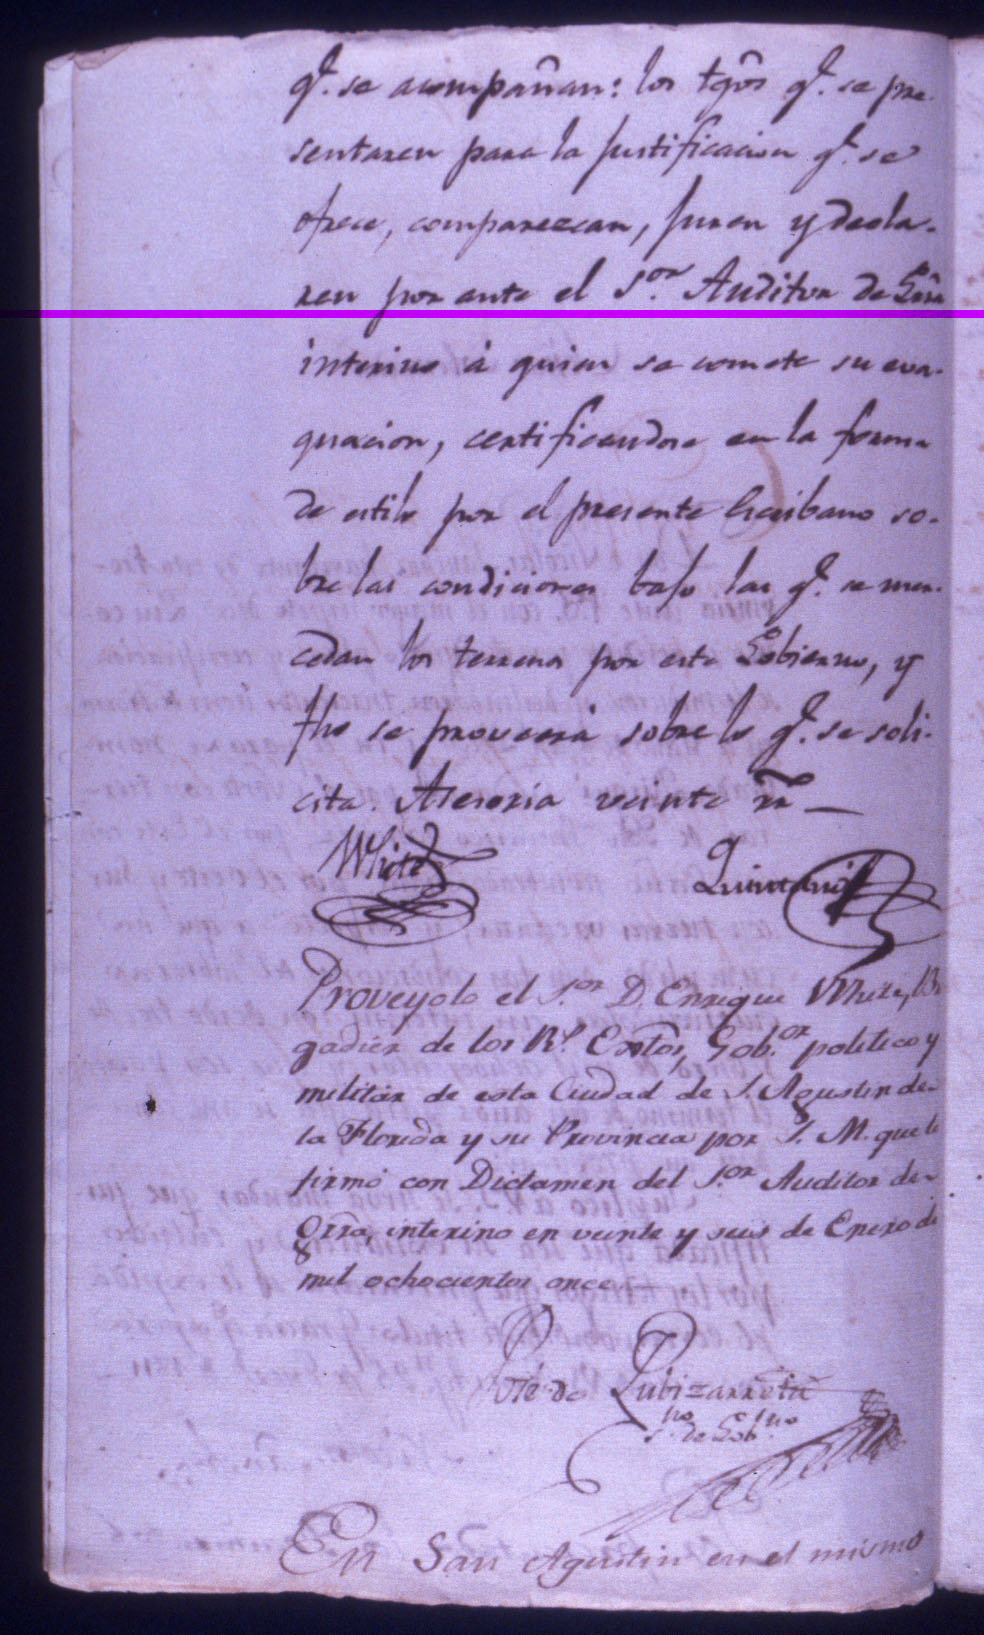 q.e se acompañan: los tgõs q.e se pre-
sentaren para la justificacion q.e se
ofrece, comparezcan, juren y decla-
ren por ante el S.or Auditor de Grã
interino á quien se comete su eva-
quacion, certificandose en la forma
de estilo por el presente Escribano so-
bre las condiciones bajo las q.e se mer-
cedan los terrenos por este Gobierno, y
fho se proveerá sobre lo q.e se soli-
cita. Asesoria veinte rr̃
White
Quintana
Proveyolo el S.or D. Enrique White, Bri
gadier de los R.s Extõs, Gob.or politico y
militar de esta Ciudad de S. Agustin de
la Florida y su Provincia por S. M. que lo
firmó con Dictamen del S.or Auditor de
Grrã, interino en veinte y seis de Enero de
mil ochocientos once
de Zubizarreta
s.no de Gob.no
En San Agustin en el mismo